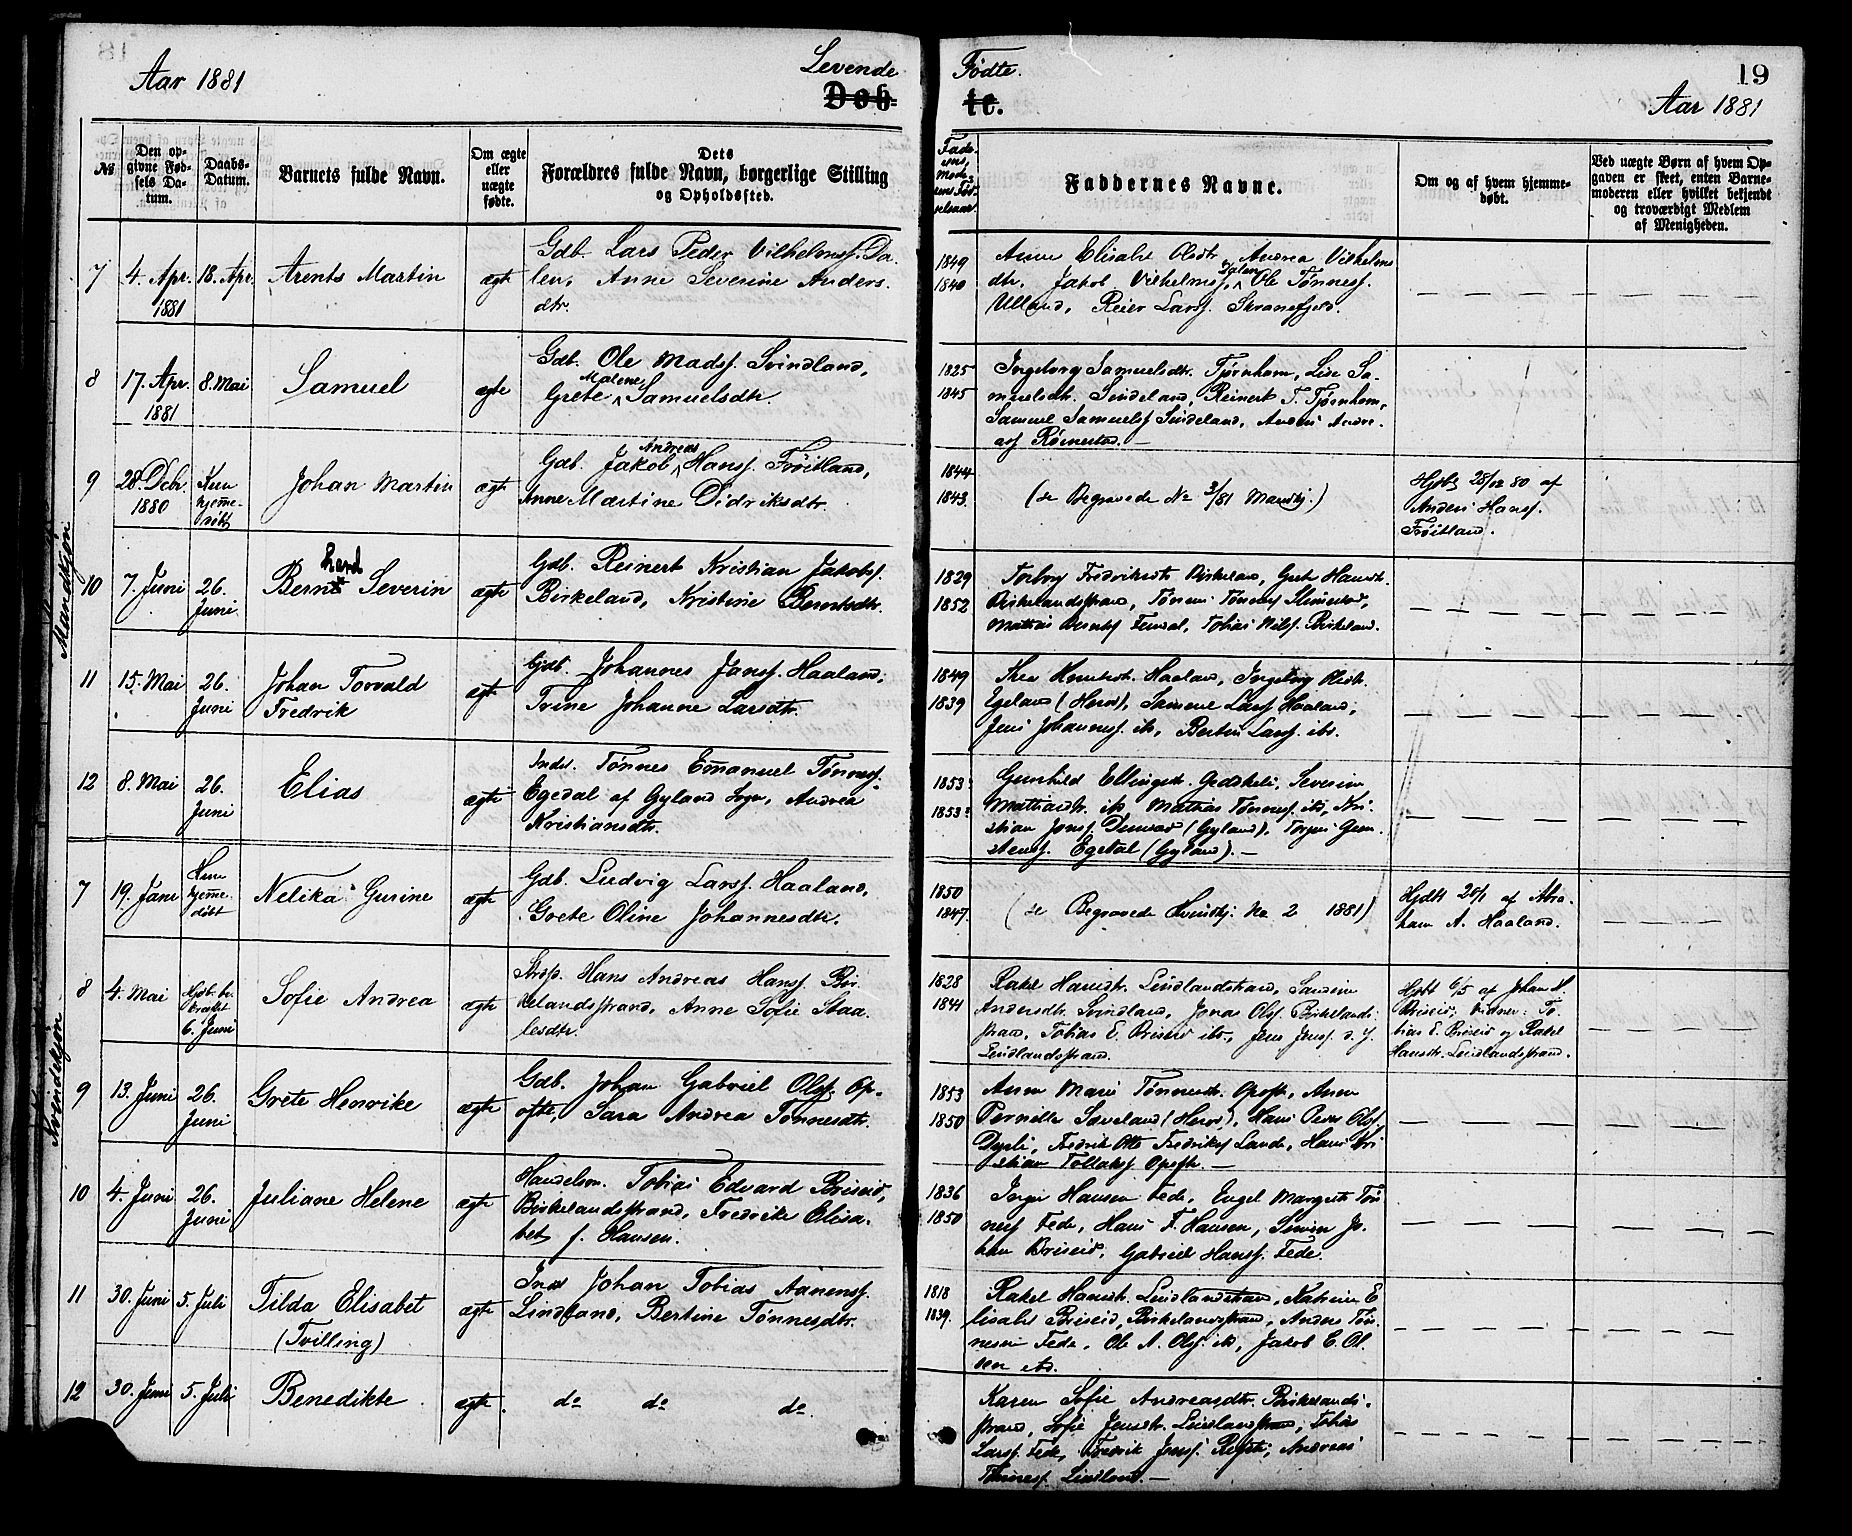 18
19
Aar 1881
Levende
Døb-
Fødte.
te.
Aar 1881
№
Den op-
givne Fød-
sels Da-
tum.
Daabs-
Datum.
Barnets fulde Navn.
Om ægte
eller
uægte
fødte.
Dets
Forældres fulde Navn, borgerlige Stilling
og Opholdssted.
Fade-
rens,
Mode-
rens Fød-
selsaar.
Faddernes Navne.
Om og af hvem hjemme-
døbt.
Ved uægte Børn af hvem Op-
gaven er skeet, enten Barne-
moderen eller hvilket bekjendt
og troværdigt Medlem
af Menigheden.
Mandkjøn
7
4. Apr.
1881
18. Apr.
Arents Martin
ægte
Gdb. Lars Peder Vilhelmsf. Da-
len, Anne Severine Anders-
dtr.
1849
1840
Anne Elisabet Olsdtr., Andrea Vilhelms
dtr. Jakob Vilhelmsf. Dalen, Ole Tønnesf.
Ulland, Reier Larsf. Skranefjeld.
8
17. Apr.
1881
8. Mai
Samuel
ægte
Gdb. Ole Madsf. Svindland,
Grete Malene Samuelsdtr.
1825
1845
Ingeborg Samuelsdtr. Tjørnhom, Lise Sa-
muelsdtr. Sindeland, Reinert T. Tjørnhom,
Samuel Samuelsf Sindeland, Anders Andre-
asf Rømestad. —
9
28. Decbr.
1880
Kun
hjemme-
døbt
Johan Martin
ægte
Gdb. Jakob Andreas Hansf. Frøitland,
Anne Martine Didriksdtr.
1844
1843.
(se Begravede No 3/81 Mandkj.)
Hjdbt 28/12 80 af
Anders Hansf.
Frøitland.
10
7. Juni
26.
Juni
Bernhard Severin
ægte
Gdb. Reinert Kristian Jakobsf.
Birkeland, Kristine Berntsdtr.
1829
1852
Torborg Fredriksdtr Birkeland, Gurte Hansdtr.
Birkelandsstrand, Tønnes Tønnesf Slimestad,
Mathias Berntsf Feusal, Tobias Nilsf. Birkeland.
11
15. Mai
26.
Juni
Johan Torvald
Fredrik
ægte
Gdb. Johannes Jansf. Haaland,
Trine Johanne Larsdtr.
1849
1839
Thea Knudsdtr. Haaland, Ingeborg Olsdtr.
Egeland (Herad), Samuel Larsf Haaland,
Jens Johannesf. ibd, Bertin Larsf. ibd.
12
8. Mai
26.
Juni
Elias
ægte
Inds. Tønnes Emanuel Tønnesf.
Egedal af Gyland Sogn, Andrea
Kristiansdtr.
1853
1853
Gunhild Ellingsdtr. Gedskeli, Severine
Mathiasdtr. ibd Mathias Tønnesf. ibd, Kri-
stian Jonsf Dunsad (Gyland), Torjus Gun-
stensf. Egedal (Gyland). —
Kvindekjøn
7
19. Janr
Kun
hjemme-
døbt
Nelika Gurine
ægte
Gdb. Ludvig Larsf. Haaland,
Grete Oline Johannesdtr.
1850
1847.
(se Begravede Kvindkj. No 2 1881)
Hjdbt 20/1 af Abra-
ham A. Haaland.
8
4. Mai
Hjdb. be-
kræftet
6. Juni
Sofie Andrea
ægte
Strdsp. Hans Andreas Hansf. Bir-
kelandsstrand, Anne Sofie Staa-
lesdtr.
1828
1841
Rakel Hansdtr. Lindlandsstrand, Samsine
Andersdtr. Svindland, Jonas Olsf. Birkelands-
strand, Tobias E. Briseid ibd., Jens Jensf. d. y.
Lindlandsstrand.
Hjdbt 6/5 af Johan H.
Briseid, Vidner: To-
bias E. Briseid og Rakel
Hansdtr. Lindlandsstrand.
9
13. Juni
26.
Juni
Grete Henrike
ægte
Gdb. Johan Gabriel Olsf. Op-
ofte, Sara Andrea Tønnesdtr.
1853
1850
Anne Marie Tønnesdtr. Opofte, Anne
Pernille Sæveland (Herad), Hans Peder Olsf
Dyrli, Fredrik Otto Fredriksf Lande, Hans Kri-
stian Tollaksf Opofte. —
10
4. Juni
26.
Juni
Juliane Helene
ægte
Handelsm. Tobias Edvard Briseid,
Birkelandsstrand, Fredrikke Elisa-
bet f. Hansen.
1836
1850
Inger Hansen Fede, Engel Margrete Tøn-
nesf Fede, Hans F. Hansen, Simon Jo-
han Briseid, Gabriel Hansf. Fede.
11
30. Juni
5. Juli
Tilda Elisabet
(Tvilling)
ægte
Inds Johan Tobias Aanensf.
Lindland, Bertine Tønnesdtr.
1818
1839.
Rakel Hansdtr. Lindlandsstrand, Katrine E
lisabet Briseid, Birkelandsstrand, Anders Tøn-
nesen Fede, Ole A. Olsf. ibd, Jakob E. Ol-
sen ibd.
12
30. Juni
5. Juli
Benedikte
ægte.
do do do.
Karen Sofie Andreasdtr. Birkelands-
strand, Sofie Jensdtr. Lindlandsstrand, Tobias
Larsf. Fede, Fredrik Jensf. Refsti, Andreas
Tønnesf. Lindland. —